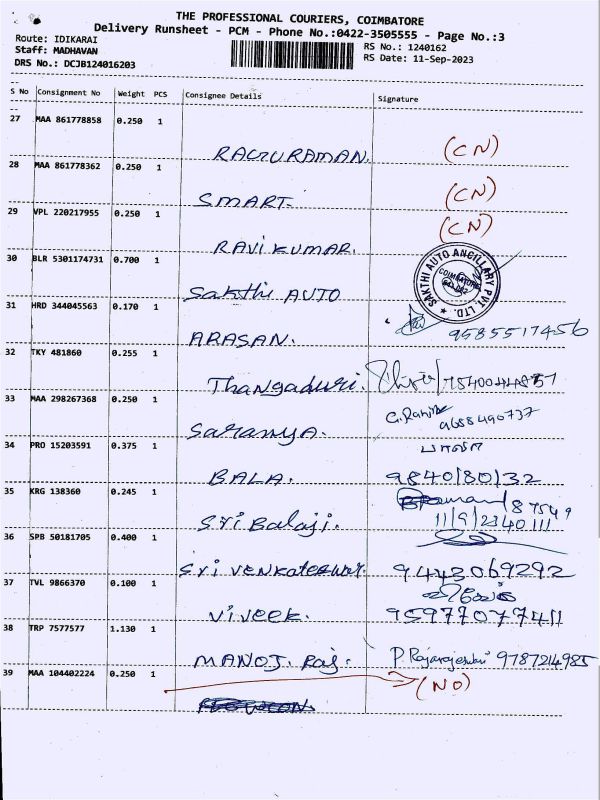 THE PROFESSIONAL COURIERS, COIMBATORE
Delivery Runsheet - PCM - Phone No.:0422-3505555 - Page No.:3
Route: IDIKARAI RS No.: 1240162
Staff: MADHAVAN RS Date: 11-Sep-2023
DRS No.: DCJB124016203
S No Consignment No Weight PCS Consignee Details Signature
27 MAA 861778858 0.250 1
RAGURAMAN. (CN)
28 MAA 861778362 0.250 1
SMART. (CN)
29 VPL 220217955 0.250 1 (CN)
RAVI KUMAR.
30 BLR 5301174731 0.700 1
SAKTHI AUTO ANCILLARY PVT. LTD.
COIMBATORE
Sakthi AUTO
31 HRD 344045563 0.170 1
ARASAN. 9585517456
32 TKY 481860 0.255 1
Thangaduri.
33 MAA 298267368 0.250 1
9688490737
Saranya.
34 PRO 15203591 0.375 1
BALA. 9840180132
35 KRG 138360 0.245 1
Sri Balaji. 11/9/23
36 SPB 50181705 0.400 1
Sri Venkateswar. 9443069292
37 TVL 9866370 0.100 1
Viveek. 9597707741
38 TRP 7577577 1.130 1
MANOJ. Raj. P. Rajarajeswari 9787214985
39 MAA 104402224 0.250 1 (NO)